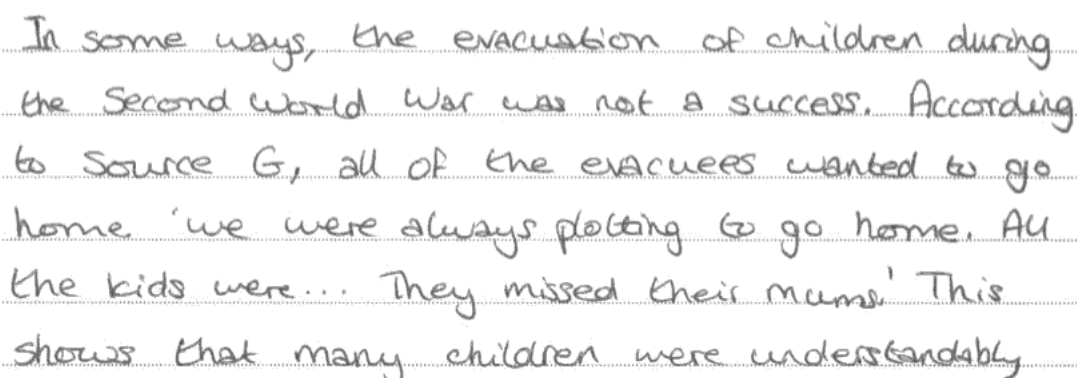 In some ways, the evacuation of children during
the Second World War was not a success. According
to Source G, all of the evacuees wanted to go
home 'we were always plotting to go home. All
the kids were... They missed their mums.' This
shows that many children were understandably